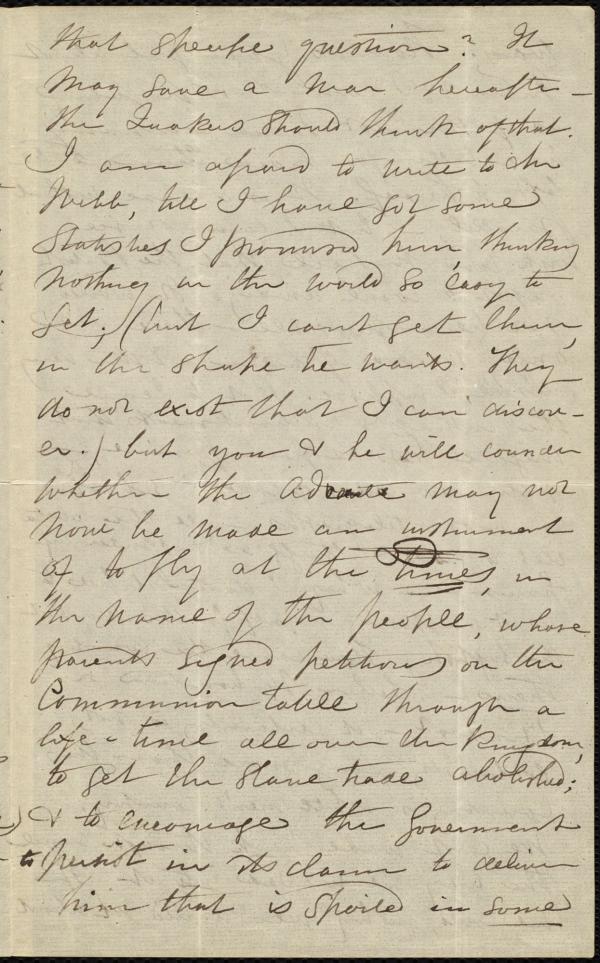 that specific question? It
may save a war hereafter –
the Quakers should think of that.
I am afraid to write to Mr
Webb, till I have got some
statistics I promised him, thinking
nothing in the world so easy to
get, (but I cant get them,
in the shape he wants. They
do not exist that I can discov-
er.) but you & he will consider
whether the Advocate may not
now be made an instrument
of to fly at the times, in
the name of the people, whose
parents signed petitions on the
Communion table through a
life-time all over the Kingdom,
to get the slave trade abolished;
& to encourage the Government
to persist in its claim to deliver
him that is spoiled in some